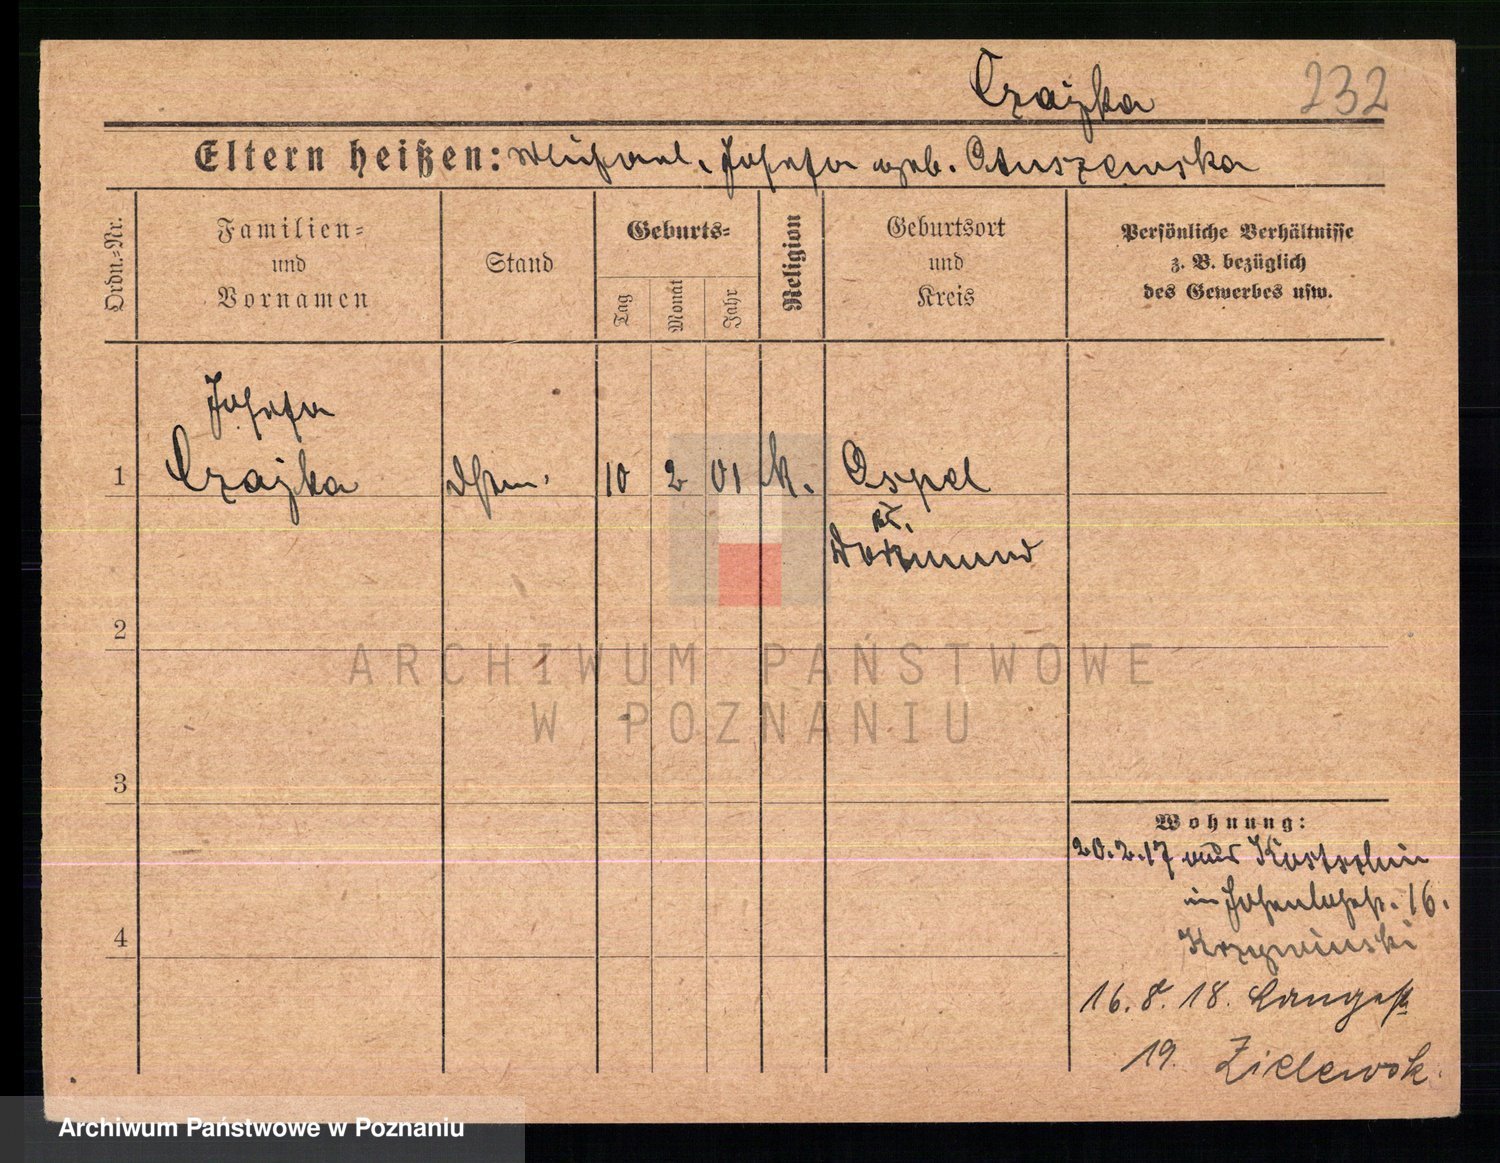 Czajka 232
Eltern heißen: Michael, Josefa geb. Owszewska
Ordn.-Nr.
Familien-
und
Vornamen
Stand
Geburts-
Tag
Monat
Jahr
Religion
Geburtsort
und
Kreis
Persönliche Verhältnisse
z. B. bezüglich
des Gewerbes usw.
Josefa
1 Czajka 10 2 01 k. Aspel
Kr.
Dortmund
2
ARCHIWUM PAŃSTWOWE
W POZNANIU
3
Wohnung:
20.2.17 aus Kostschin
in Hohenlohestr. 16.
Krzywinski
4
16.8.18. Langestr
19. Zielewsk.
Archiwum Państwowe w Poznaniu